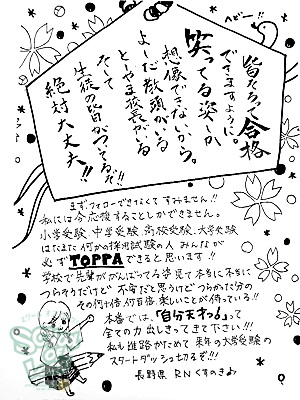 ヘビー!!
皆そろって合格
できますように。
笑ってる姿しか
想像できないから。
よーだ教頭がいる
とーやま校長がいる
そして
生徒の皆がついてるぞ!!
絶対大丈夫!!
まずフォローできたくて すみません!!
私には今応援することしかできません。
小学受験、中学受験、高校受験、大学受験
はたまた 何かの採用試験の人 みんなが
必ず TOPPA できると思います!!
学校で先輩ががんばってる姿見て本当に本当に
つらそうだけど 不安だと思うけど つらかった分の
その何倍、何百倍 楽しいことが待っている!!
本番では、「自分天才っ6」って
全ての力出しきってきて下さい!!
私も進路かためて 来年の大学受験の
スタートダッシュ切るぞ!!!
長野県 RN くすのきよ